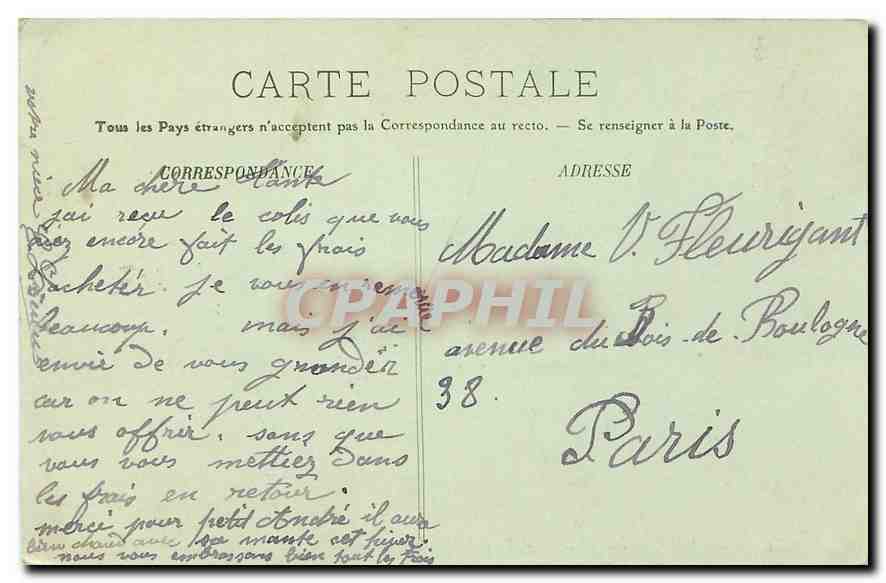 CARTE POSTALE
Tous les Pays étrangers n'acceptent pas la Correspondance au recto. — Se renseigner à la Poste.
CORRESPONDANCE
Ma chère Tante
j'ai reçu le colis que vous
aiez encore fait les frais
d'acheter. je vous en remercie
beaucoup. mais j'ai
envie de vous grander
car on ne peut rien
vous offrir. sans que
vous vous mettiez dans
les frais en retour.
merci pour petit André il aura
bien chaud avec sa mante cet hiver.
nous vous embrassons bien tout les trois
votre nièce
ADRESSE
Madame V. Fleurigant
avenue du Bois-de-Boulogne
38.
Paris
CPAPHIL